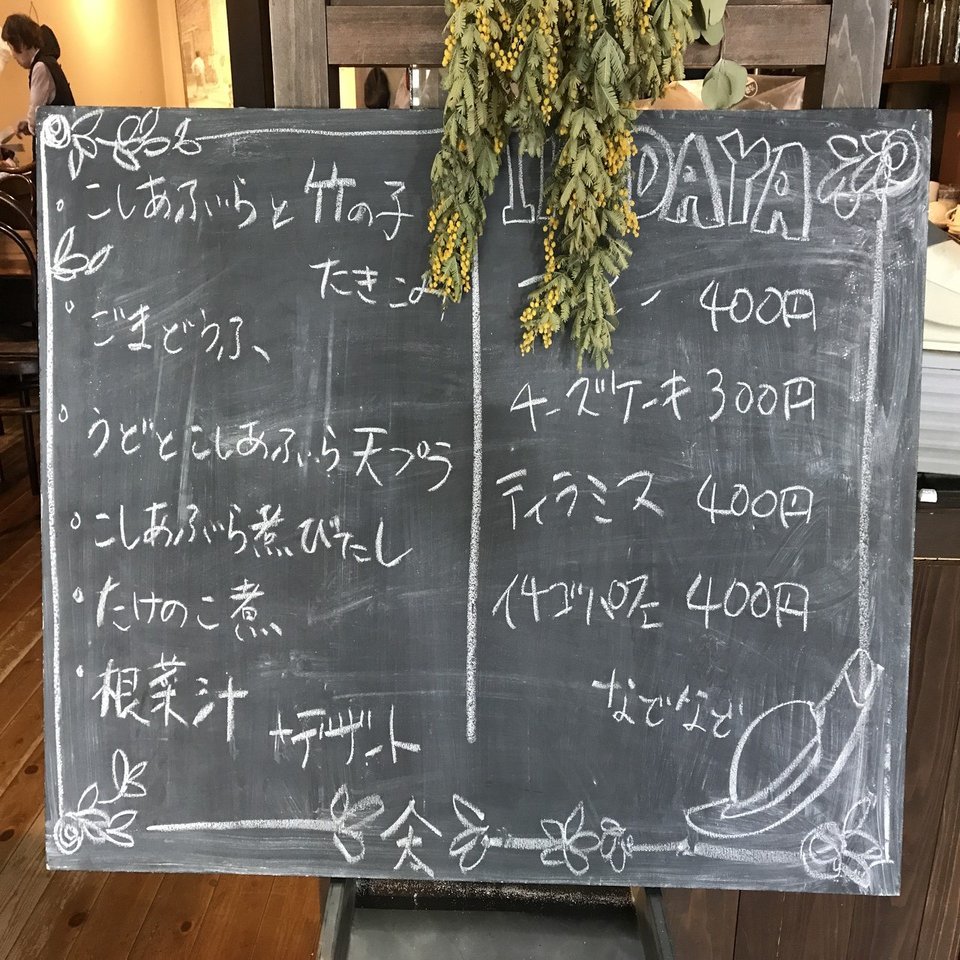 こしあぶらと竹の子
たきこみ
ごまどうふ、
うどとこしあぶら天プラ
こしあぶら煮びたし
たけのこ煮
根菜汁
+デザート
DAYA
400円
チーズケーキ 300円
ティラミス 400円
イチゴパフェ 400円
などなど